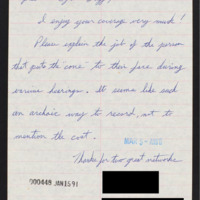 I enjoy your coverage very much!
Please explain the job of the person
that puts the "cone" to their face during
various hearings. It seems like such
an archaic way to record, not to
mention the cost.
Thanks for two great networks
000448 JAN 15 91